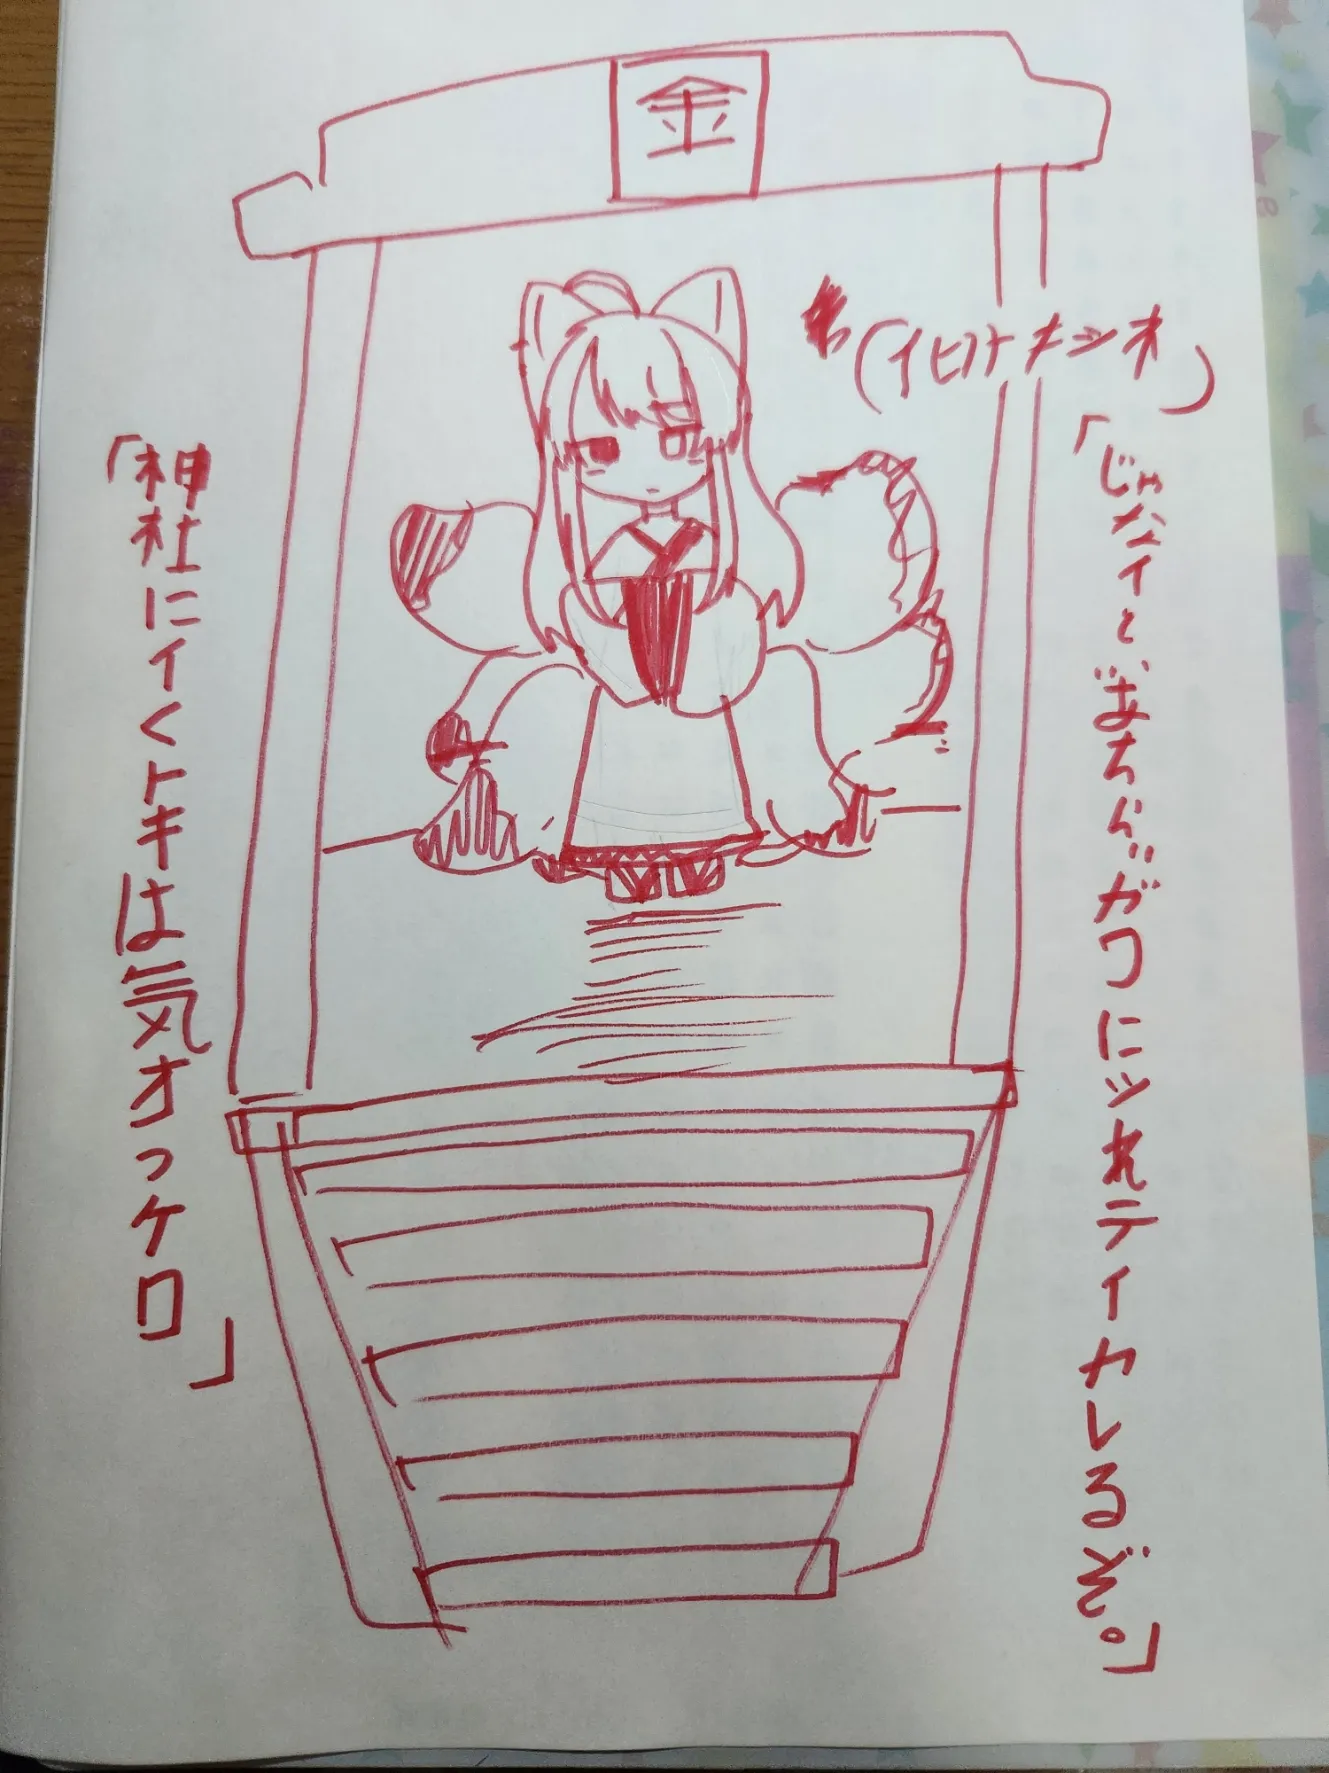 金
(イヒントキシオ)
「じゃなイと、あちらガワにツれテイカレるぞ。」
「神社にイくトキは気オつケロ」